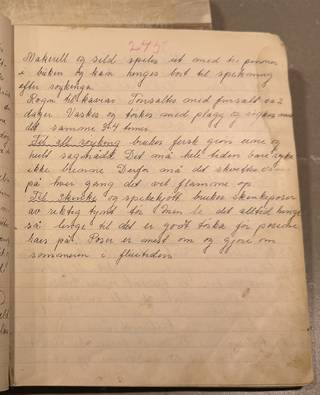 275
Makrell og sild speles ut med to pinner
i buken og kan henges bort til spekning
efter røykinga.
Rogn til kaviar Torsaltes med finsalt ca 2
døger. Vaskes og tørkes med plagg og røykes med
det samme 3-4 timer.
Til all røyking brukes fersk grov eine og
helt sagdrådt. Det må hele tiden bare ryke
ikke brenne Derfor må det skvettes
på hver gang det vil flamme op
Til Skinke og spekekjøtt brukes skinkeposer
av riktig tynt tøi Men la det alltid henge
så lenge til det er godt tørka før posene
haes på. Poser er mest om og gjøre om
sommeren i fluetiden